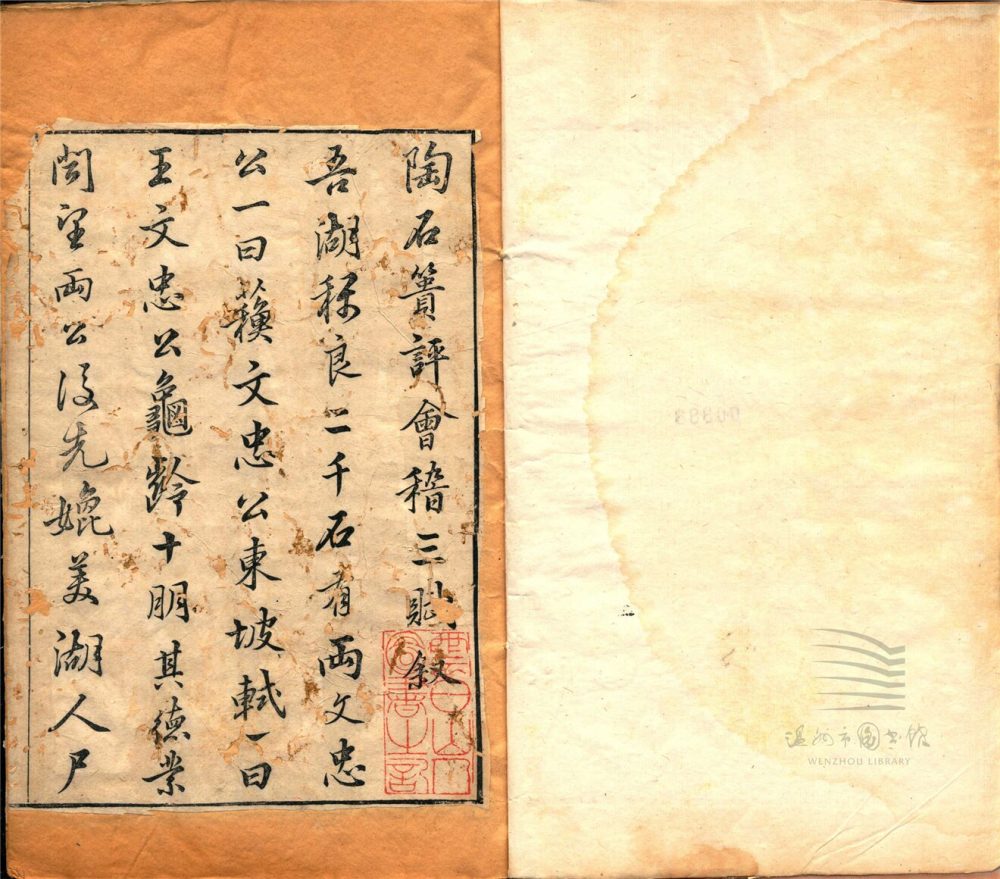 陶石簣評會稽三賦叙
吾湖稱良二千石有兩文忠
公一曰蘓文忠公東坡軾一曰
王文忠公龜齡十朋其德業
聞望兩公後先媲美湖人尸
00993
温州市图书馆
WENZHOU LIBRARY